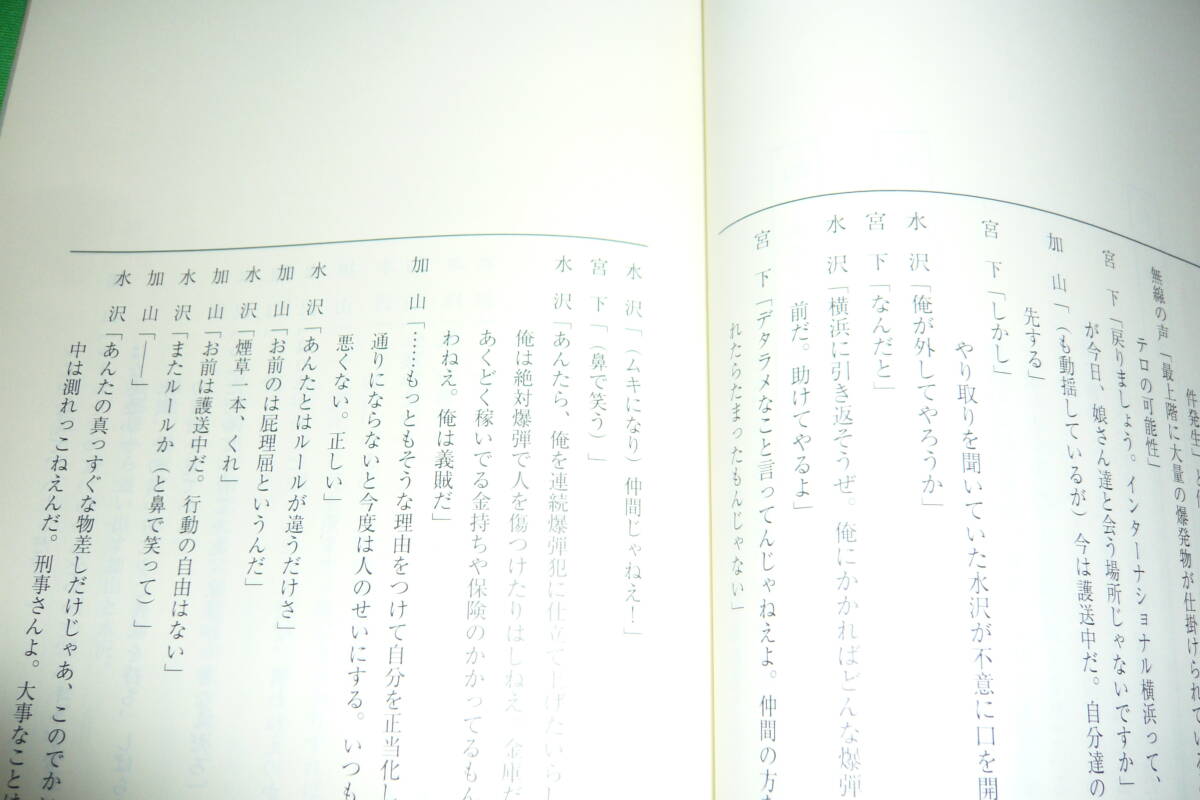 件発生」と
無線の声「最上階に大量の爆発物が仕掛けられている
テロの可能性」
宮　下「戻りましょう。インターナショナル横浜って、
が今日、娘さん達と会う場所じゃないですか」
加　山「（も動揺しているが）今は護送中だ。自分達の
先する」
宮　下「しかし」
やり取りを聞いていた水沢が不意に口を開
水　沢「俺が外してやろうか」
宮　下「なんだと」
水　沢「横浜に引き返そうぜ。俺にかかればどんな爆弾
前だ。助けてやるよ」
宮　下「デタラメなこと言ってんじゃねえよ。仲間の方
れたらたまったもんじゃない」
水　沢「（ムキになり）仲間じゃねえ！」
宮　下「（鼻で笑う）」
水　沢「あんたら、俺を連続爆弾犯に仕立て上げたいらし
俺は絶対爆弾で人を傷つけたりはしねえ。金庫だ
あくどく稼いでる金持ちや保険のかかってるもん
わねえ。俺は義賊だ」
加　山「……もっともそうな理由をつけて自分を正当化し
通りにならないと今度は人のせいにする。いつも
悪くない。正しい」
水　沢「あんたとはルールが違うだけさ」
加　山「お前のは屁理屈というんだ」
水　沢「…煙草一本、くれ」
加　山「お前は護送中だ。行動の自由はない」
水　沢「またルールか（と鼻で笑って）」
加　山「――」
水　沢「あんたの真っすぐな物差しだけじゃあ、このでか
中は測れっこねえんだ。刑事さんよ。大事なことは